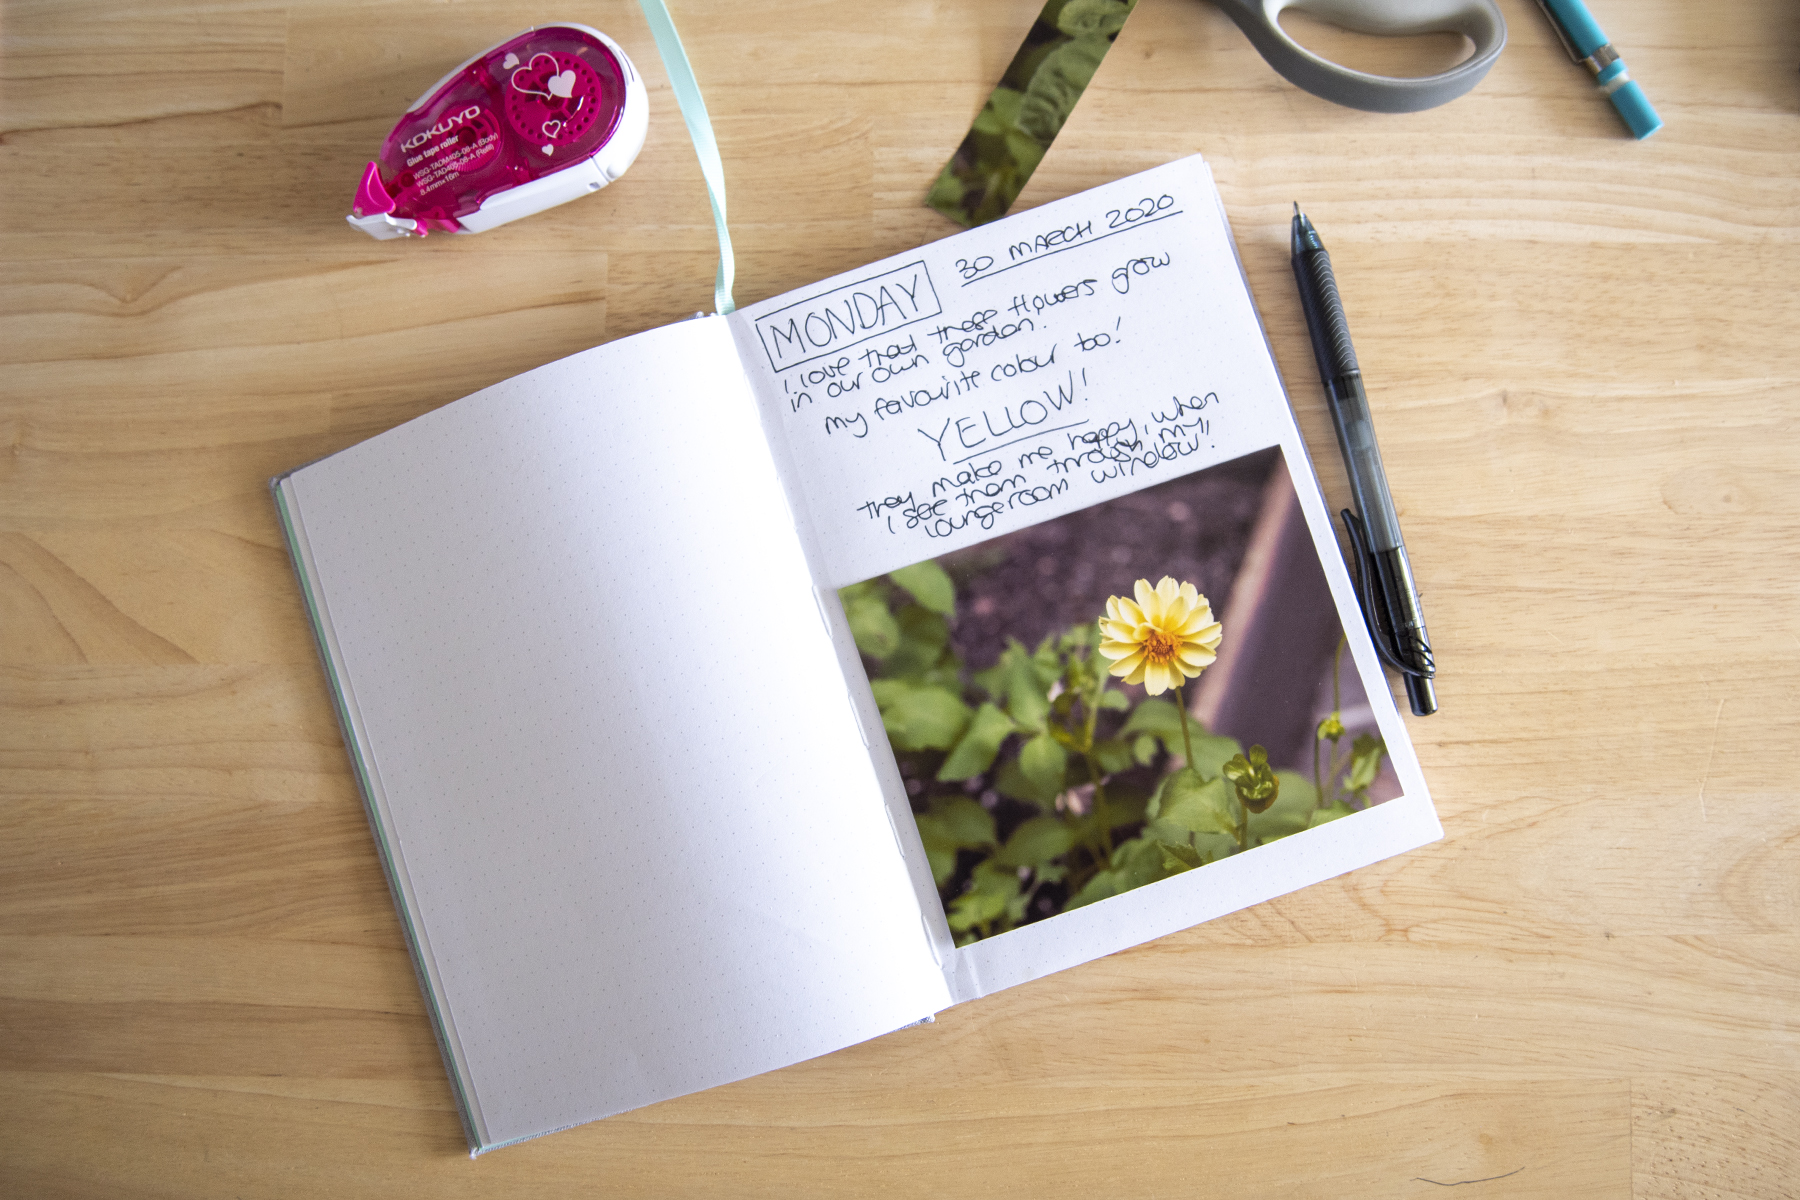 KOKUYO
Glue tape roller
WSG-TADM405-08-A (Body)
WSG-TAD405-08-A (Refill)
8.4mm×16m
MONDAY 30 MARCH 2020
I love that these flowers grow
in our own garden.
my favourite colour too!
YELLOW!
they make me happy, when
I see them through my
loungeroom window!